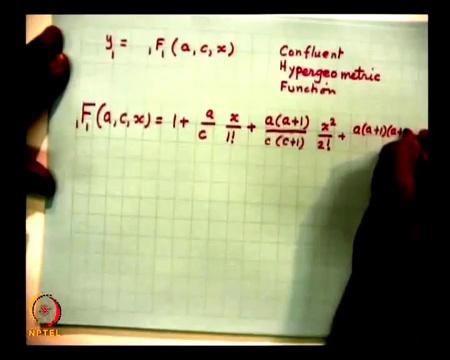 y₁ = ₁F₁ (a, c, x)
Confluent
Hypergeometric
Function
₁F₁(a,c,x) = 1 + a/c x/1! + a(a+1)/c(c+1) x²/2! + a(a+1)(a+
NPTEL